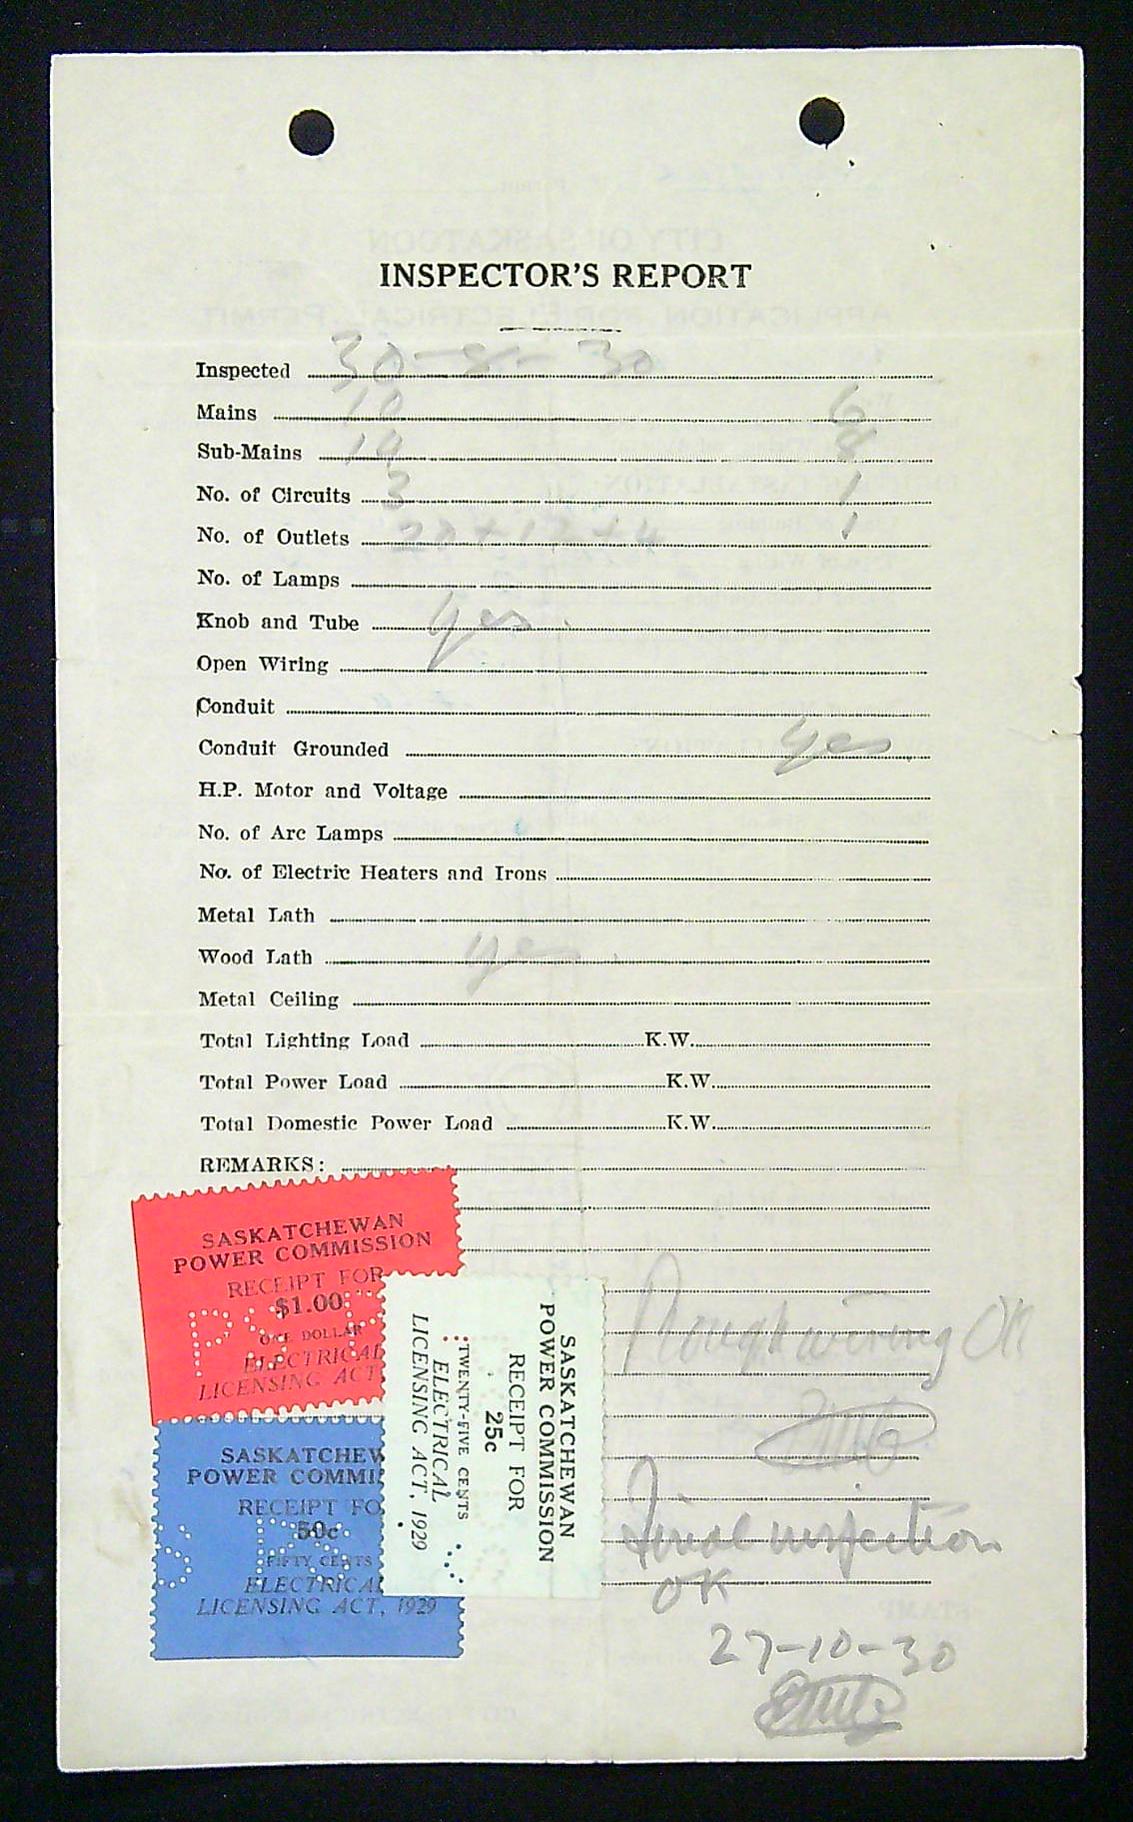 INSPECTOR'S REPORT
Inspected 30-8-30
Mains 10 6
Sub-Mains 14 8
No. of Circuits 3 1
No. of Outlets 27+12+4 1
No. of Lamps
Knob and Tube yes.
Open Wiring
Conduit
Conduit Grounded yes
H.P. Motor and Voltage
No. of Arc Lamps
No. of Electric Heaters and Irons
Metal Lath
Wood Lath yes.
Metal Ceiling
Total Lighting Load K.W.
Total Power Load K.W.
Total Domestic Power Load K.W.
REMARKS:
SASKATCHEWAN
POWER COMMISSION
RECEIPT FOR
$1.00
ONE DOLLAR
ELECTRICAL
LICENSING ACT
SASKATCHEW
POWER COMMI
RECEIPT FO
50c
FIFTY CENTS
ELECTRICAL
LICENSING ACT, 1929
SASKATCHEWAN
POWER COMMISSION
RECEIPT FOR
25c
TWENTY-FIVE CENTS
ELECTRICAL
LICENSING ACT, 1929
Rough wiring OK
Final inspection
OK
27-10-30